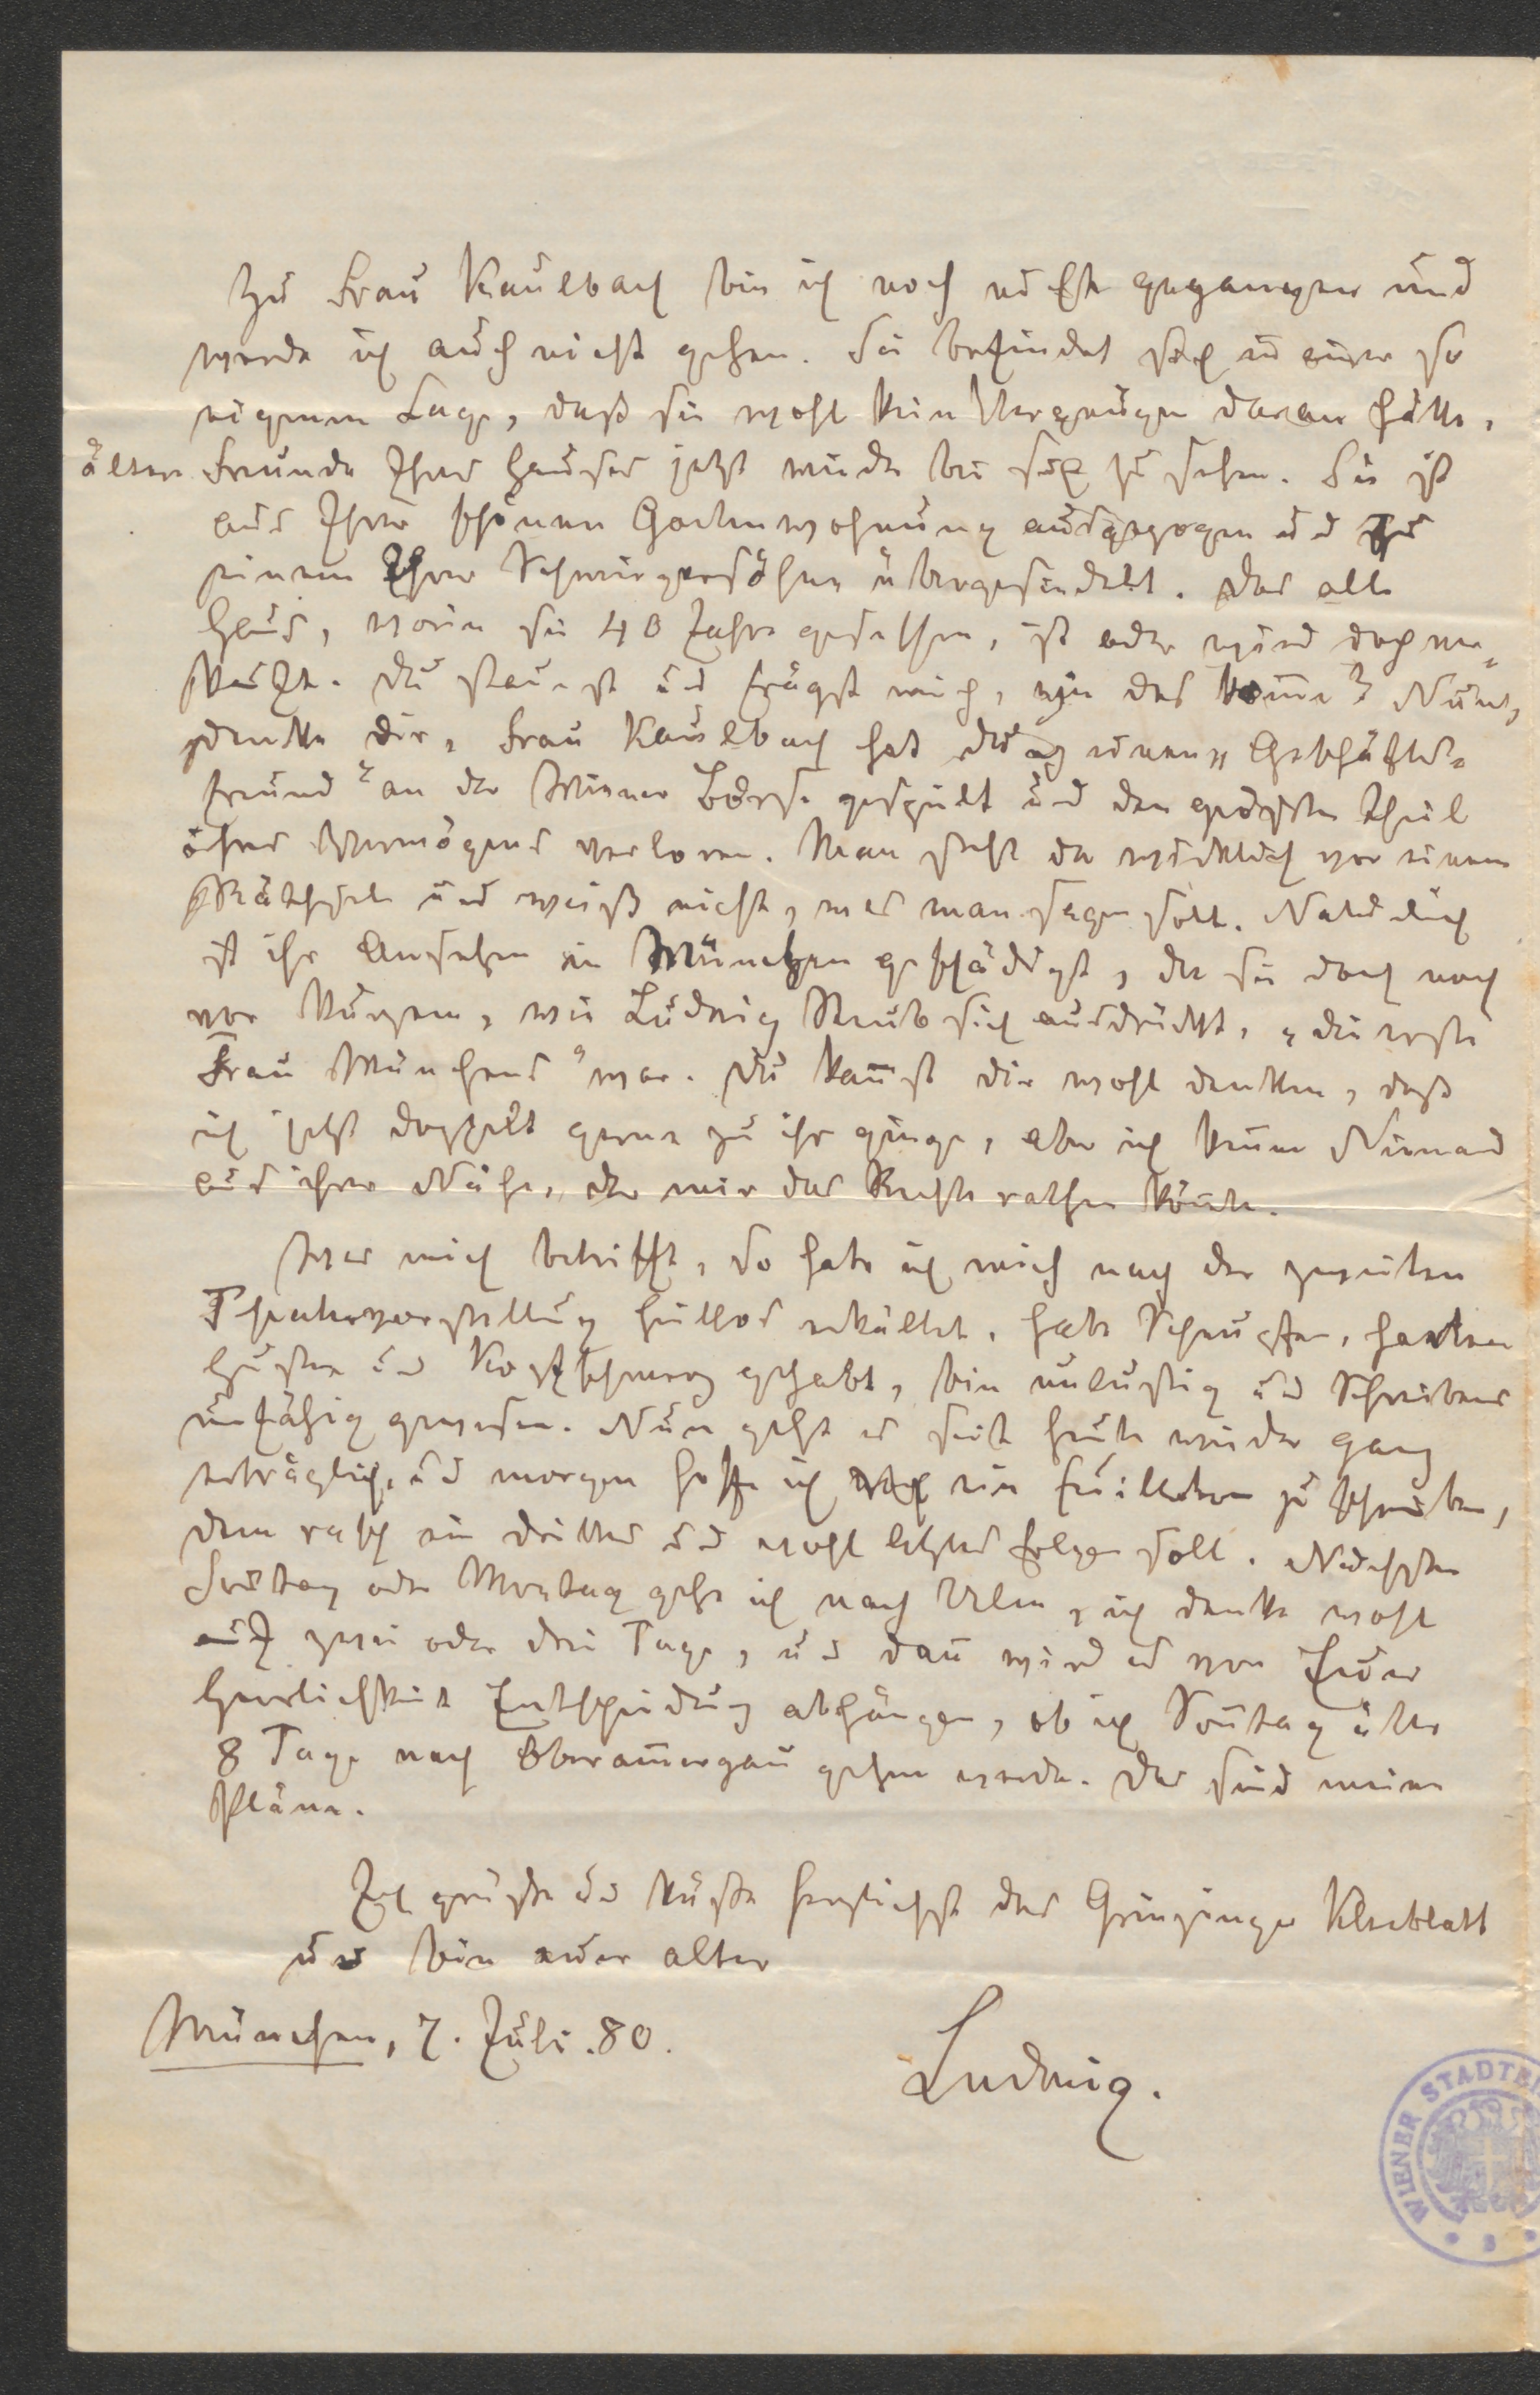 Zu Frau Kaulbach bin ich noch nicht gegangen und
werde ich auch nicht gehen. Sie befindet sich in einer so
eigenen Lage, daß sie wohl kein Vergnügen daran hätte,
ältere Freunde Ihres Hauses jetzt wieder bei sich zu sehen. Sie ist
aus Ihrer schönen Gartenwohnung ausgezogen und zu
einem Ihrer Schwiegersöhne übergesiedelt. Das alte
Haus, worin sie 40 Jahre gesessen, ist oder wird doch ver-
kauft. Du staunst und frägst mich, wie das kom̄e? Nun,
denke dir, Frau Kaulbach hat durch einen „Geschäfts-
freund“ an der Wiener Börse gespielt und den größten Theil
ihres Vermögens verloren. Man steht da wirklich vor einem
Räthsel und weiß nicht, was man sagen soll. Natürlich
ist ihr Ansehen in München geschädigt, da sie doch noch
vor Kurzem, wie Ludwig Steub sich ausdrückt, „die erste
Frau Münchens“ war. Du kan̄st dir wohl denken, daß
ich jetzt doppelt gerne zu ihr ginge, aber ich kenne Niemand
aus ihrer Nähe, der mir das Rechte rathen kön̄te.
Was mich betrifft, so habe ich mich nach der zweiten
Theatervorstellung heillos erkältet, habe Schnupfen, harten
Husten und Kopfschmerz gehabt, bin unlustig und Schreibens
unfähig gewesen. Nun geht es seit heute wieder ganz
erträglich, und morgen hoffe ich ein Feuilleton zu schreiben,
dem rasch ein drittes und wohl letztes folgen soll. Nächsten
Sontag oder Montag gehe ich nach Ulm, ich denke wohl
auf zwei oder drei Tage, und dan̄ wird es von Eurer
Herrlichkeit Entscheidung abhängen, ob ich Son̄tag über
8 Tage nach Oberam̄ergau gehen werde. Das sind meine
Pläne.
Ich grüße und küße herzlichst das Grinzinger Kleeblatt
und bin euer alter
München, 7. Juli. 80.
Ludwig.
WIENER STADTB